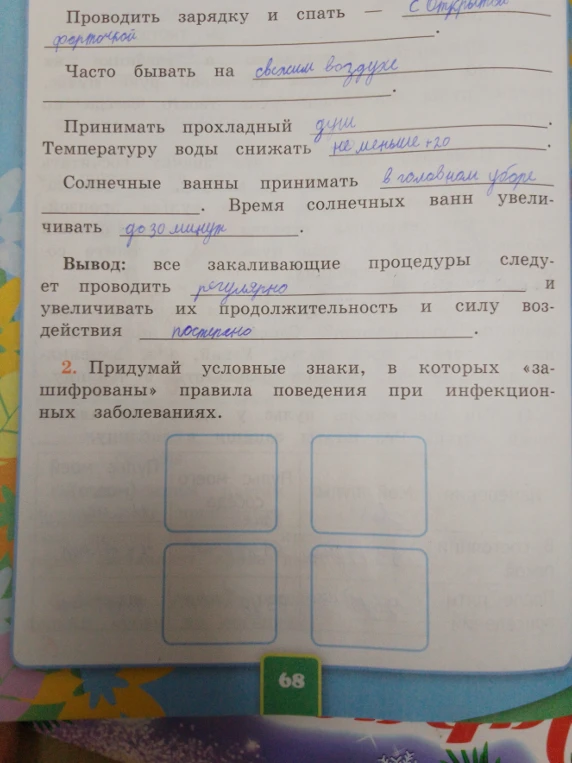 Проводить зарядку и спать — с открытой
форточкой.
Часто бывать на свежим воздухе
.
Принимать прохладный душ.
Температуру воды снижать не меньше +20.
Солнечные ванны принимать в головном уборе
. Время солнечных ванн увели-
чивать до 30 минут.
Вывод: все закаливающие процедуры следу-
ет проводить регулярно и
увеличивать их продолжительность и силу воз-
действия .
2. Придумай условные знаки, в которых «за-
шифрованы» правила поведения при инфекцион-
ных заболеваниях.
68